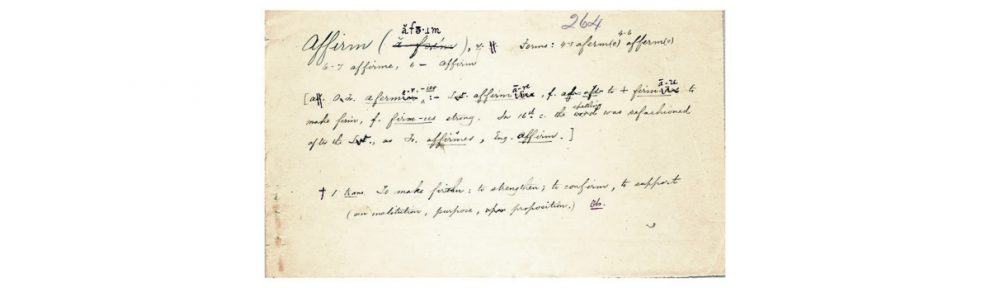 264
ăfə̄·ɹm
Affirm (ă-fɜ́ɹm), v. Forms: 4-5 aferm(e) 4-6 afferm(e)
6-7 affirme, 6 - affirm
[a. O.Fr. afermer :- Lat. affirmāre, f. af- = ad- to + firmāre to
make firm, f. firm-us strong. In 16th c. the spelling was refashioned
after the Lat., as Fr. affirmer, Eng. affirm.]
† 1 trans. To make firm: to strengthen; to confirm, to support
(an institution, purpose, proposition.) Obs.